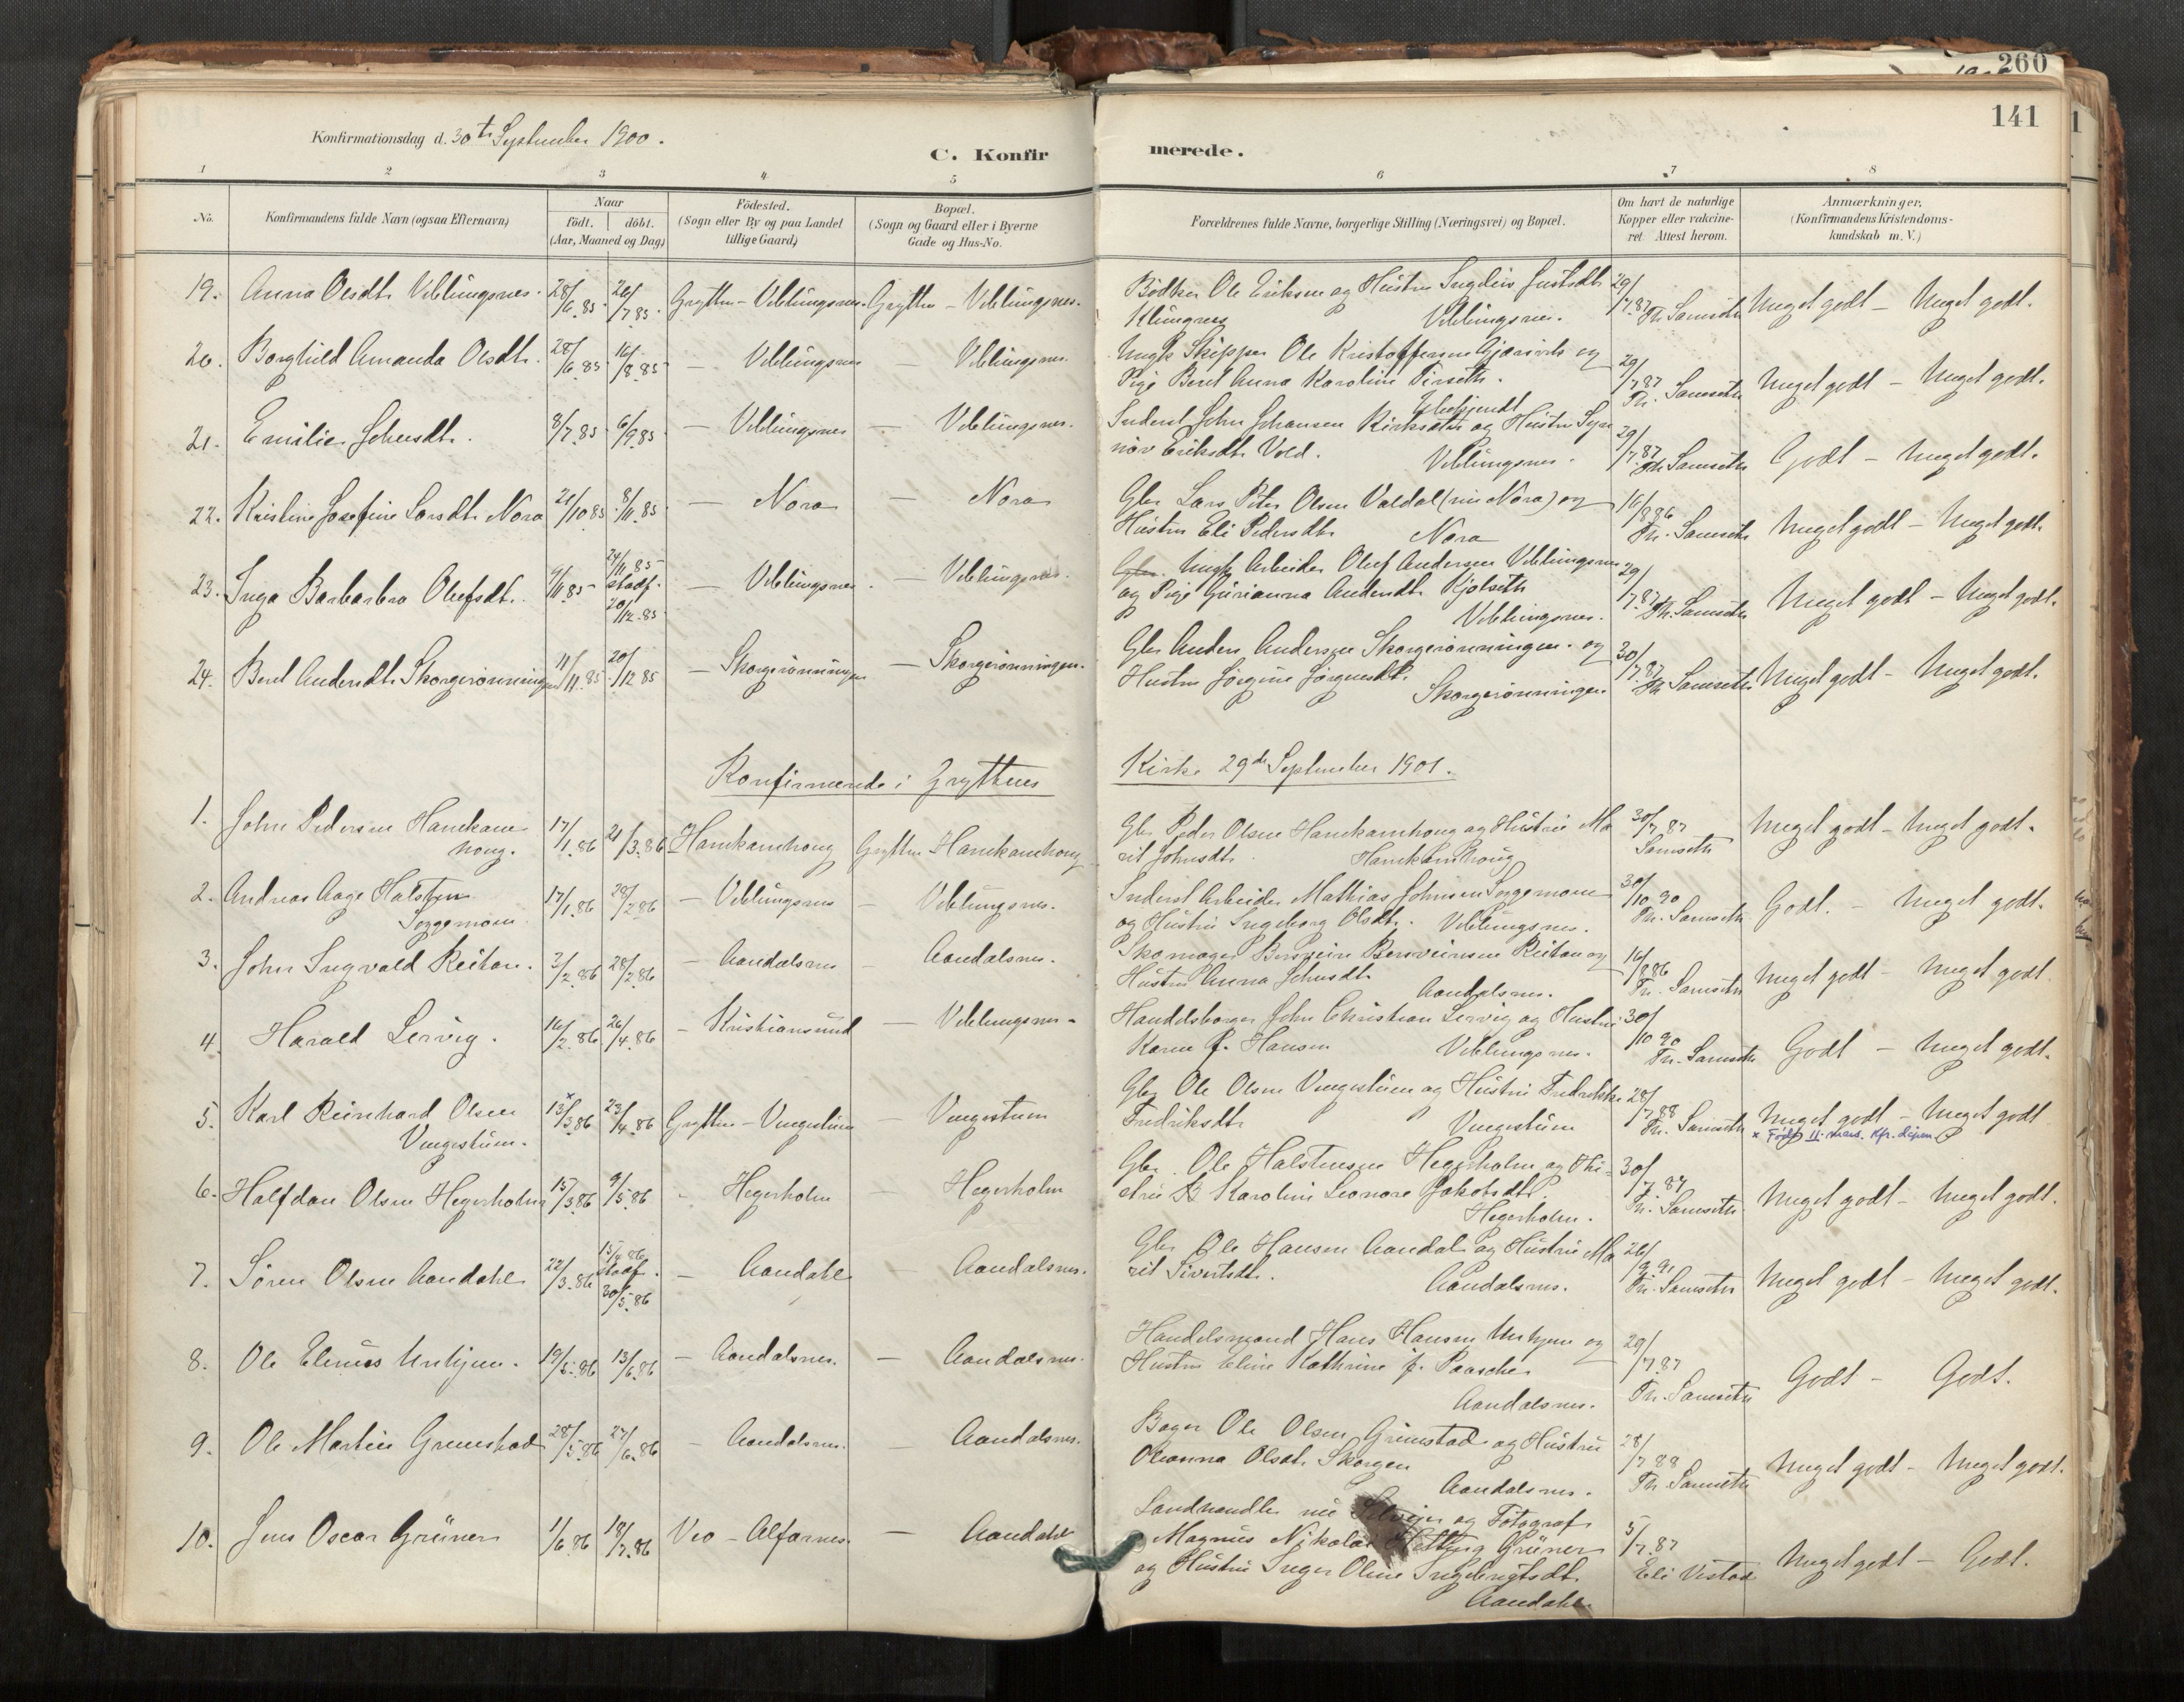 260
141
Konfirmationsdag d. 30te September 1900.
C. Konfirmerede.
1 2 3 4 5 6 7 8
No.
Konfirmandens fulde Navn (ogsaa Efternavn)
Naar
født. døbt.
(Aar, Maaned og Dag)
Fødested.
(Sogn eller By og paa Landet
tillige Gaard)
Bopæl.
(Sogn og Gaard eller i Byerne
Gade og Hus-No.
Forældrenes fulde Navne, borgerlige Stilling (Næringsvei) og Bopæl.
Om havt de naturlige
Kopper eller vakcine-
ret. Attest herom.
Anmærkninger.
(Konfirmandens Kristendoms-
kundskab m. V.)
19. Anna Olsdtr. Veblungsnes. 28/6.85 26/7.85 Grytten - Veblungsnes. Grytten - Veblungsnes. Bødker Ole Eriksen og Hustru 29/7.87 Th. Samseth Meget godt - Meget godt.
Klungnes Veblungsnes.
20. Borghild Amanda Olsdtr. 28/6.85 16/8.85 — Veblungsnes — Veblungsnes. Ungk. Skipper Ole Kristoffersen og 29/7.87 Th. Samseth Meget godt - Meget godt.
Pige Beret Anna Karoline
21. Emilie Johnsdtr. 8/7.85 6/9.85 — Veblungsnes — Veblungsnes. Inderst John Johansen og Hustru Syn- 29/7.87 Th. Samseth Godt - Meget godt.
nøv Eriksdtr. Vold. Veblungsnes.
22. Kristine Josefine Larsdtr. Nora 21/10.85 8/11.85 — Nora — Nora Gbr. Lars Peter Olsen Valdal (nu Nora) og 16/8.86 Th. Samseth Meget godt - Meget godt.
Hustru Eli Pedersdtr. Nora
23. Inga Barbarbra Olufsdtr. 9/11.85 24/11.85 stadf. 20/12.85 — Veblungsnes. — Veblungsnes. Gbr. Ungk. Arbeider Oluf Andersen Veblungsnes 29/7.87 Th. Samseth Meget godt - Meget godt.
og Pige Gurianna Andersdtr. Kjølseth
Veblungsnes.
24. Beret Andersdtr. Skorgerønningen 11/11.85 20/12.85 — Skorgerønningen — Skorgerønningen. Gbr. Anders Andersen Skorgerønningen. og 30/7.87 Th. Samseth Meget godt - Meget godt.
Hustru Jørgine Jørgensdtr.
Skorgerønningen
Konfirmerede i Gryttens Kirke 29de September 1901.
1. John Pedersen Hanekam- 17/1.86 21/3.86 Hanekamhoug Grytten - Hanekamhoug Gbr. Peder Olsen Hanekamhoug og Hustru Ma- 30/7.87 Samseth Meget godt - Meget godt.
houg. rit Johnsdtr. Hanekamhoug
2. Andreas Aage Halsten 17/1.86 28/2.86 — Veblungsnes — Veblungsnes. Inderst Arbeider Mathias Johnsen Soggemoen 30/10.90 Th. Samseth Godt. - Meget godt.
Soggemoen og Hustru Ingeborg Olsdtr. Veblungsnes.
3. John Ingvald Reitan. 3/2.86 28/2.86 — Aandalsnes — Aandalsnes. Skomager Bersvein Bersveinsen Reitan og 16/8.86 Th. Samseth Meget godt - Meget godt
Hustru Anna Johnsdtr. Aandalsnes.
4. Harald Lervig. 16/2.86 26/4.86 — Kristiansund — Veblungsnes - Handelsborger John Christian Lervig og Hustru 30/10 90 Th. Samseth Godt - Meget godt.
Karen f. Hansen Veblungsnes.
5. Karl Reinhard Olsen x 13/3.86 23/4.86 Grytten - Vengestuen Vengestuen Gbr. Ole Olsen Vengestuen og Hustru Fredrikke 28/7.88 Th. Samseth Meget godt - Meget godt
Vengestuen. Fredriksdtr. Vengestuen
x Født 11. mars. Kfr. dåpen
6. Halfdan Olsen Hegerholm 15/3.86 9/5.86 - Hegerholm — Hegerholm Gbr. Ole Halstensen Hegerholm og Hu- 30/7.87 Th. Samseth Meget godt - Meget godt.
stru Karoline Leonore Jakobsdtr.
Hegerholm.
7. Søren Olsen Aandahl 22/3.86 15/4 86 stadf. 30/5.86 — Aandahl Aandalsnes. Gbr. Ole Hansen Aandal og Hustru Ma- 26/9 91 Th. Samseth Meget godt - Meget godt.
rit Sivertsdtr. Aandalsnes.
8. Ole Elenus Unhjem. 19/5.86 13/6.86 — Aandalsnes. — Aandalsnes. Handelsmand Hans Hansen Unhjem og 29/7.87 Th. Samseth Godt - Godt.
Hustru Eline Kathrine f. Paasche
Aandalsnes.
9. Ole Martin Grimstad 28/5.86 27/6.86 — Aandalsnes. — Aandalsnes. Bager Ole Olsen Grimstad og Hustru 28/7 88 Th. Samseth Meget godt - Meget godt.
Oleanna Olsdtr. Skorgen
Aandalsnes.
10. Jens Oscar Grüner 1/6.86 18/7.86 Veo - Alfarnes. — Aandahl Landhandler nu og Fotograf 5/7.87 Eli Vistad Meget godt - Godt.
Magnus Nikolai Grüner
og Hustru Inger Oline Ingebrigtsdtr.
Aandahl.